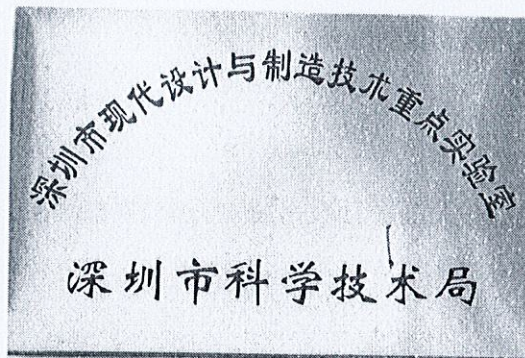 深圳市现代设计与制造技术重点实验室
深圳市科学技术局